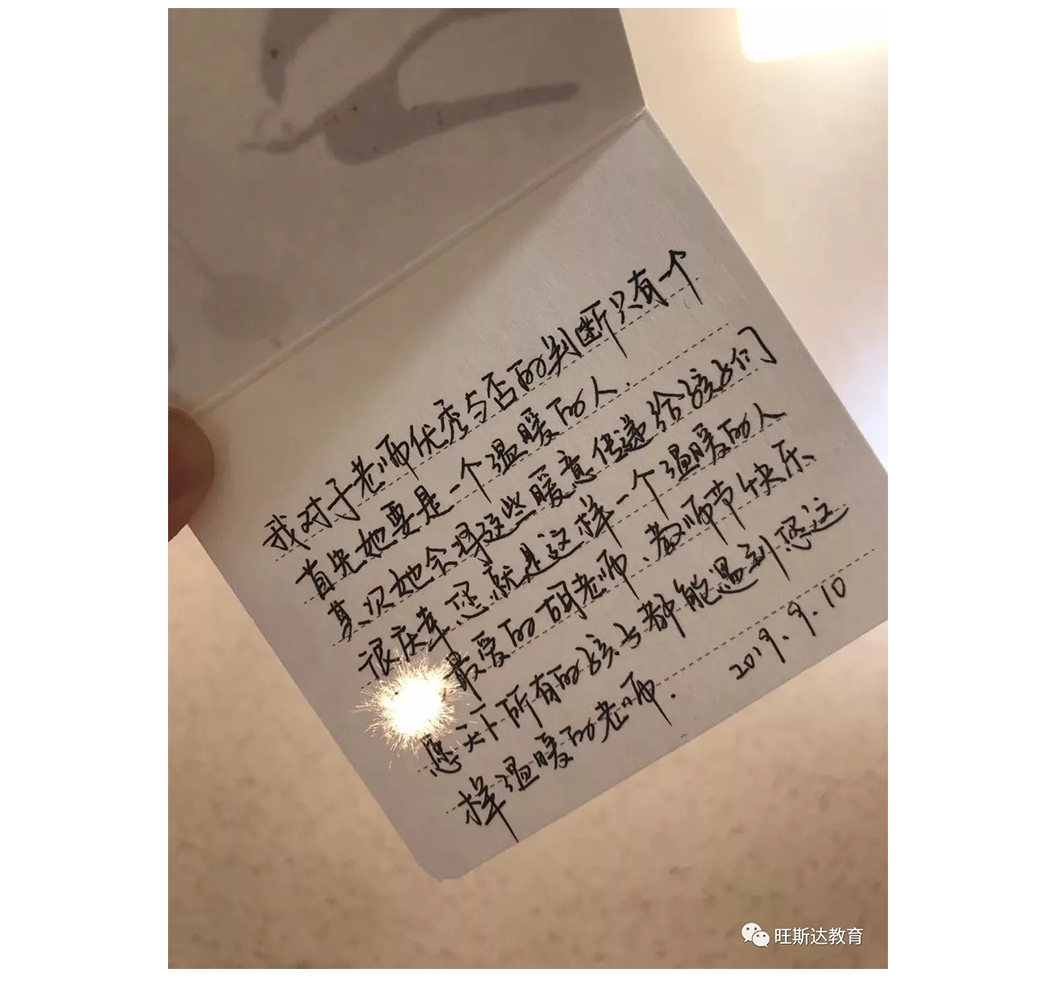 我对于老师优秀与否的判断只有一个
首先她要是一个温暖的人.
其次她会将这些暖意传递给孩子们
很庆幸您就是这样一个温暖的人
最爱的胡老师、教师节快乐
愿天下所有的孩子都能遇到您这
样温暖的老师.
2019.9.10
旺斯达教育